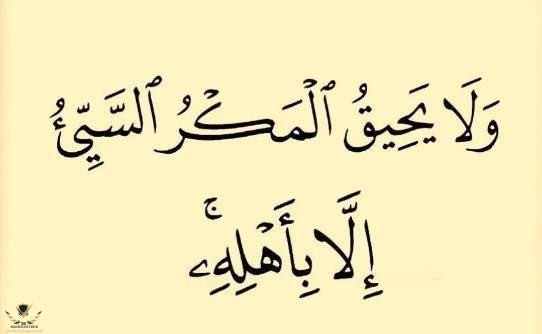 وَلَا يَحِيقُ ٱلْمَكْرُ ٱلسَّيِّئُ
إِلَّا بِأَهْلِهِۦ ۚ